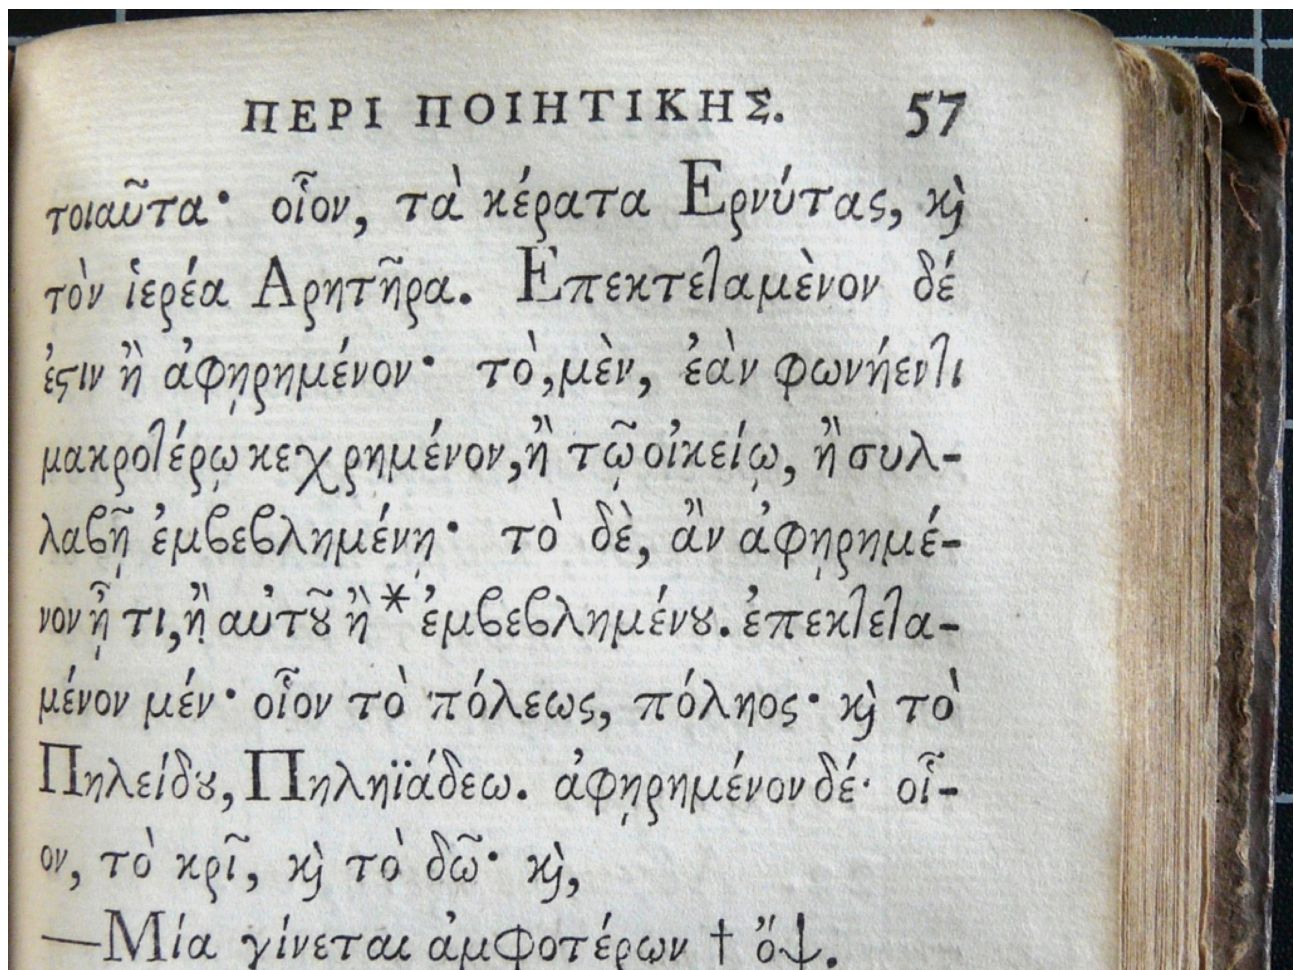 ΠΕΡΙ ΠΟΙΗΤΙΚΗΣ. 57
τοιαῦτα· οἷον, τὰ κέρατα Ερνύτας, ϗ̀
τὸν ἱερέα Αρητῆρα. Επεκτεταμὲνον δέ
ἐϛιν ἢ ἀφῃρημένον· τὸ, μὲν, ἐὰν φωνήεντι
μακροτέρῳ κεχρημένον, ἢ τῷ οἰκείῳ, ἢ συλ-
λαβῇ ἐμβεβλημένῃ· τὸ δὲ, ἂν ἀφῃρημέ-
νον ᾖ τι, ἢ αὐτȣ͂ ἢ * ἐμβεβλημένȣ. ἐπεκτετα-
μένον μέν· οἷον τὸ πόλεως, πόληος· ϗ̀ τὸ
Πηλείδȣ, Πηληϊάδεω. ἀφῃρημένον δέ· οἷ-
ον, τὸ κρῖ, ϗ̀ τὸ δῶ· ϗ̀,
—Μία γίνεται ἀμφοτέρων † ὄψ.